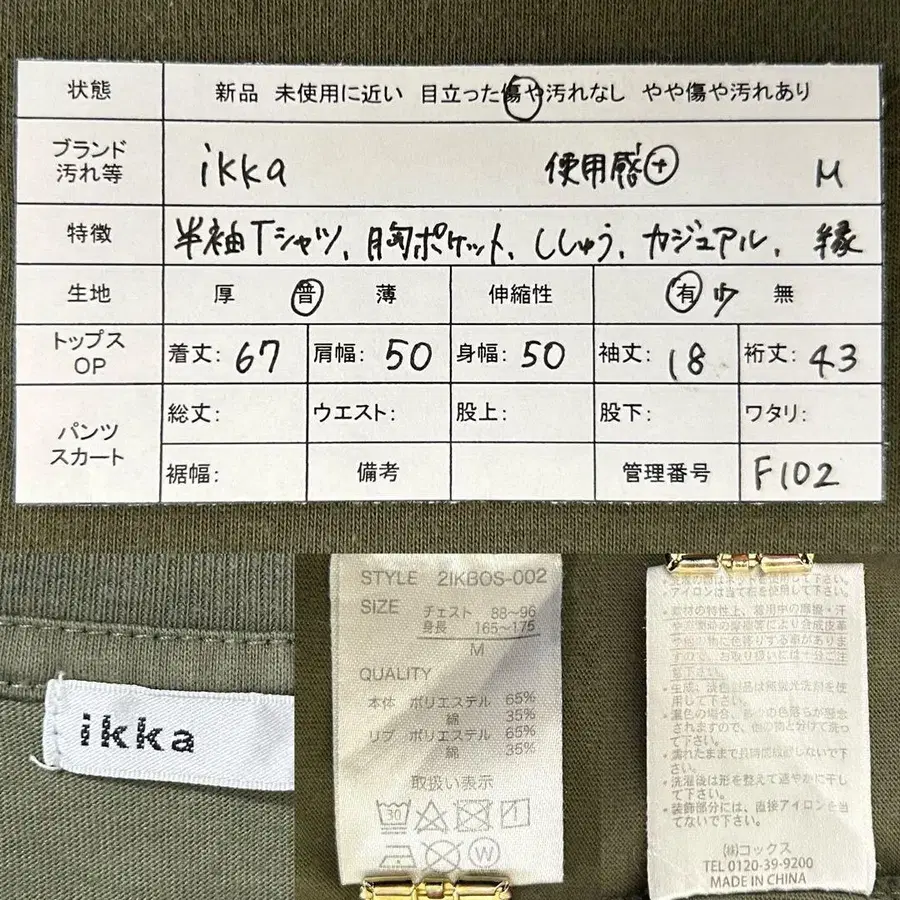 状態 新品 未使用に近い 目立った傷や汚れなし やや傷や汚れあり
ブランド
汚れ等 ikka 使用感+ M
特徴 半袖Tシャツ、胸ポケット、ししゅう、カジュアル、緑
生地 厚 普 薄 伸縮性 有 少 無
トップス
OP 着丈: 67 肩幅: 50 身幅: 50 袖丈: 18 裄丈: 43
パンツ
スカート 総丈: ウエスト: 股上: 股下: ワタリ:
裾幅: 備考 管理番号 F102
ikka
STYLE 2IKBOS-002
SIZE チェスト 88〜96
身長 165〜175
M
QUALITY
本体 ポリエステル 65%
綿 35%
リブ ポリエステル 65%
綿 35%
取扱い表示
30
W
・アイロンは当て布を使用して下さい。
・素材の特性上、着用中の摩擦・汗
や
下さい。
・生成、淡色製品は無蛍光洗剤を使
用して下さい。
・濃色の場合、多少の色落ちが懸念
されますので、他の物と分けて洗っ
て下さい。
・濡れたままで長時間放置しないで下
さい。
・洗濯後は形を整えて速やかに干し
て下さい。
・装飾部分には、直接アイロンを当
てないで下さい。
㈱コックス
TEL 0120-39-9200
MADE IN CHINA